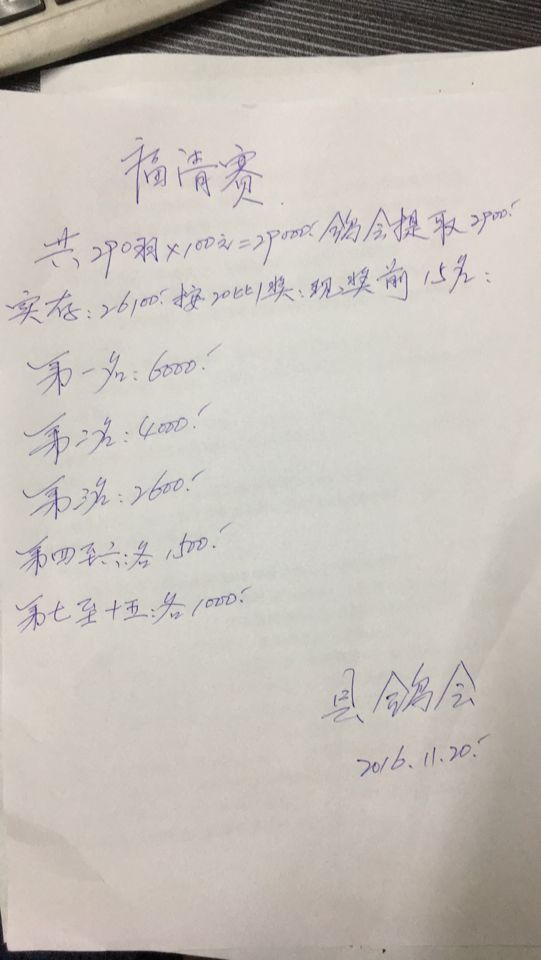 福清赛
共290羽×100元=29000.- 鸽会提取2900.-
实存:26100.- 按20比1奖:现奖前15名:
第一名:6000.-
第二名:4000.-
第三名:2600.-
第四至六:各1500.-
第七至十五:各1000.-
县鸽会
2016.11.20.-